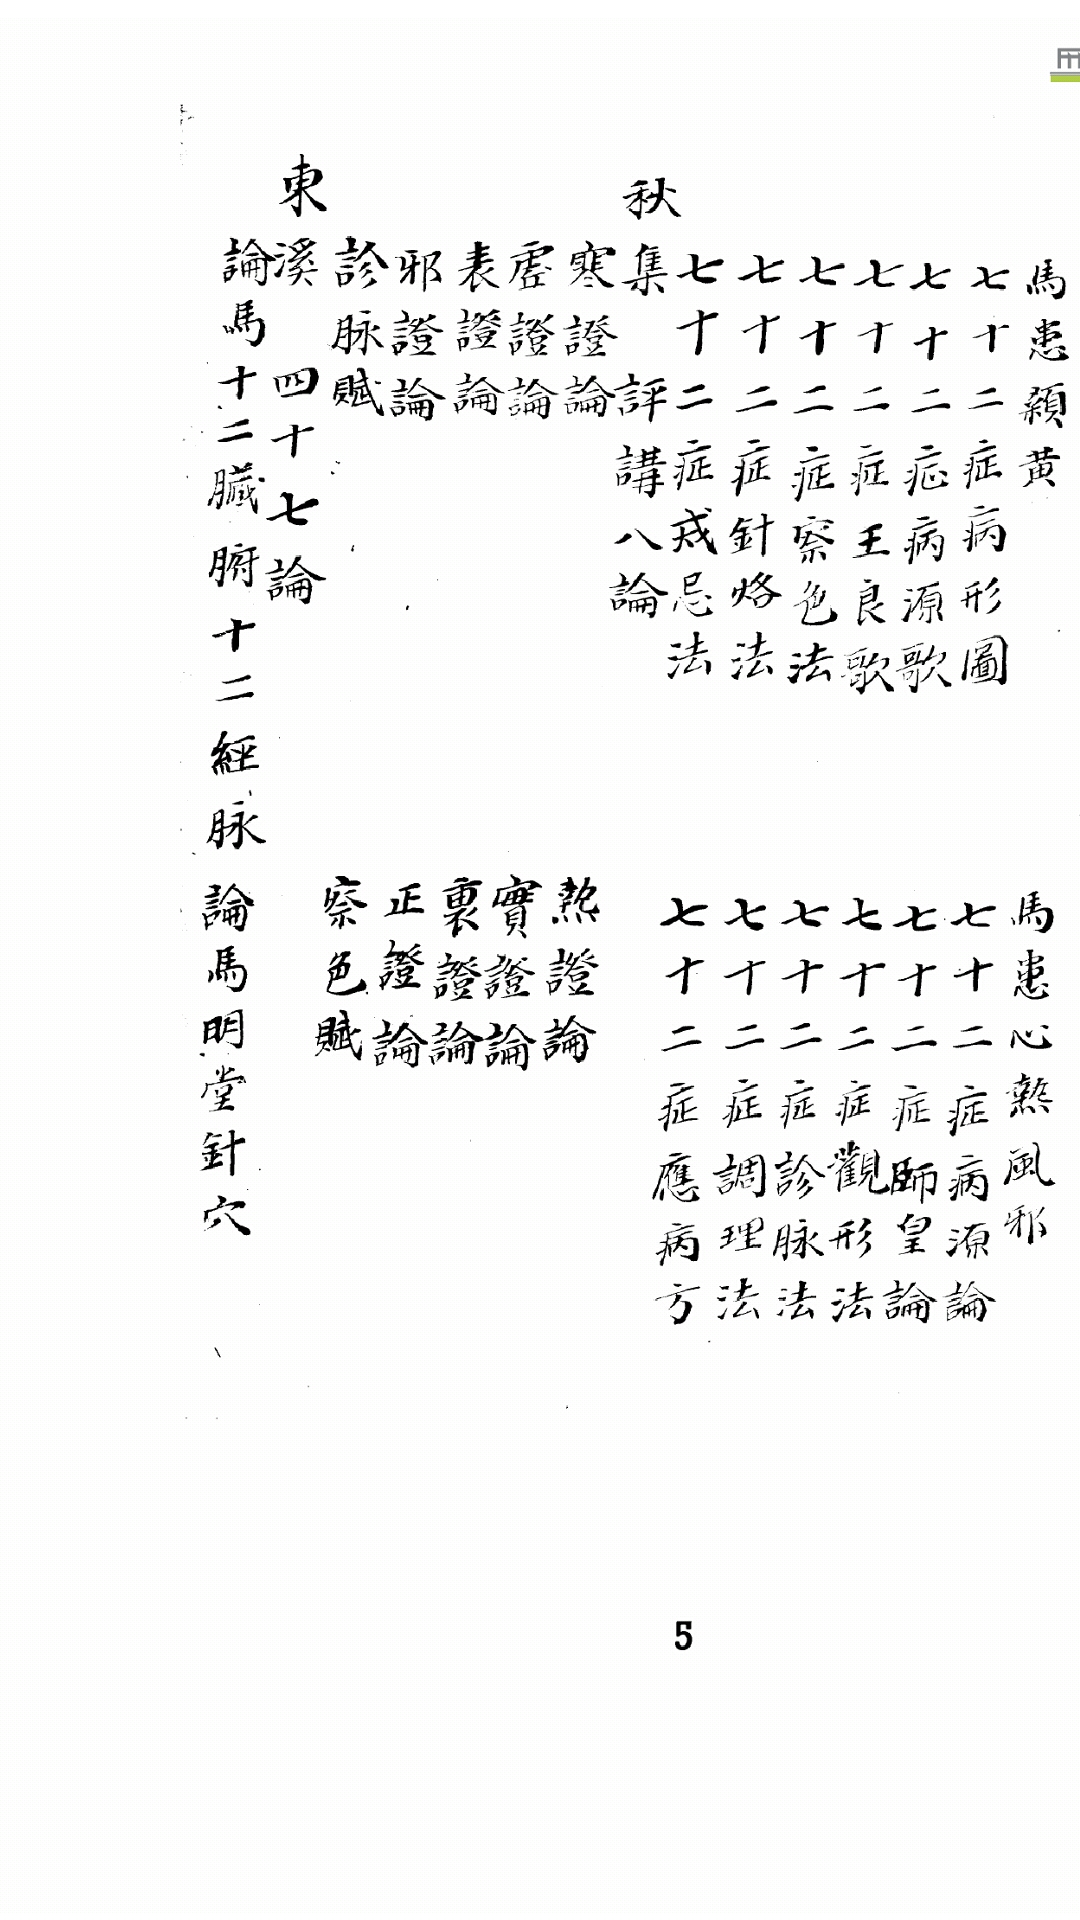 馬患顙黄 馬患心熱風邪
七十二症病形圖 七十二症病源論
七十二症病源歌 七十二症師皇論
七十二症王良歌 七十二症觀形法
七十二症察色法 七十二症診脉法
七十二症針烙法 七十二症調理法
七十二症戒忌法 七十二症應病方
秋集 評講八論
寒證論 熱證論
虛證論 實證論
表證論 裏證論
邪證論 正證論
診脉賦 察色賦
東溪 四十七論
論馬十二臟腑十二經脉 論馬明堂針穴
5